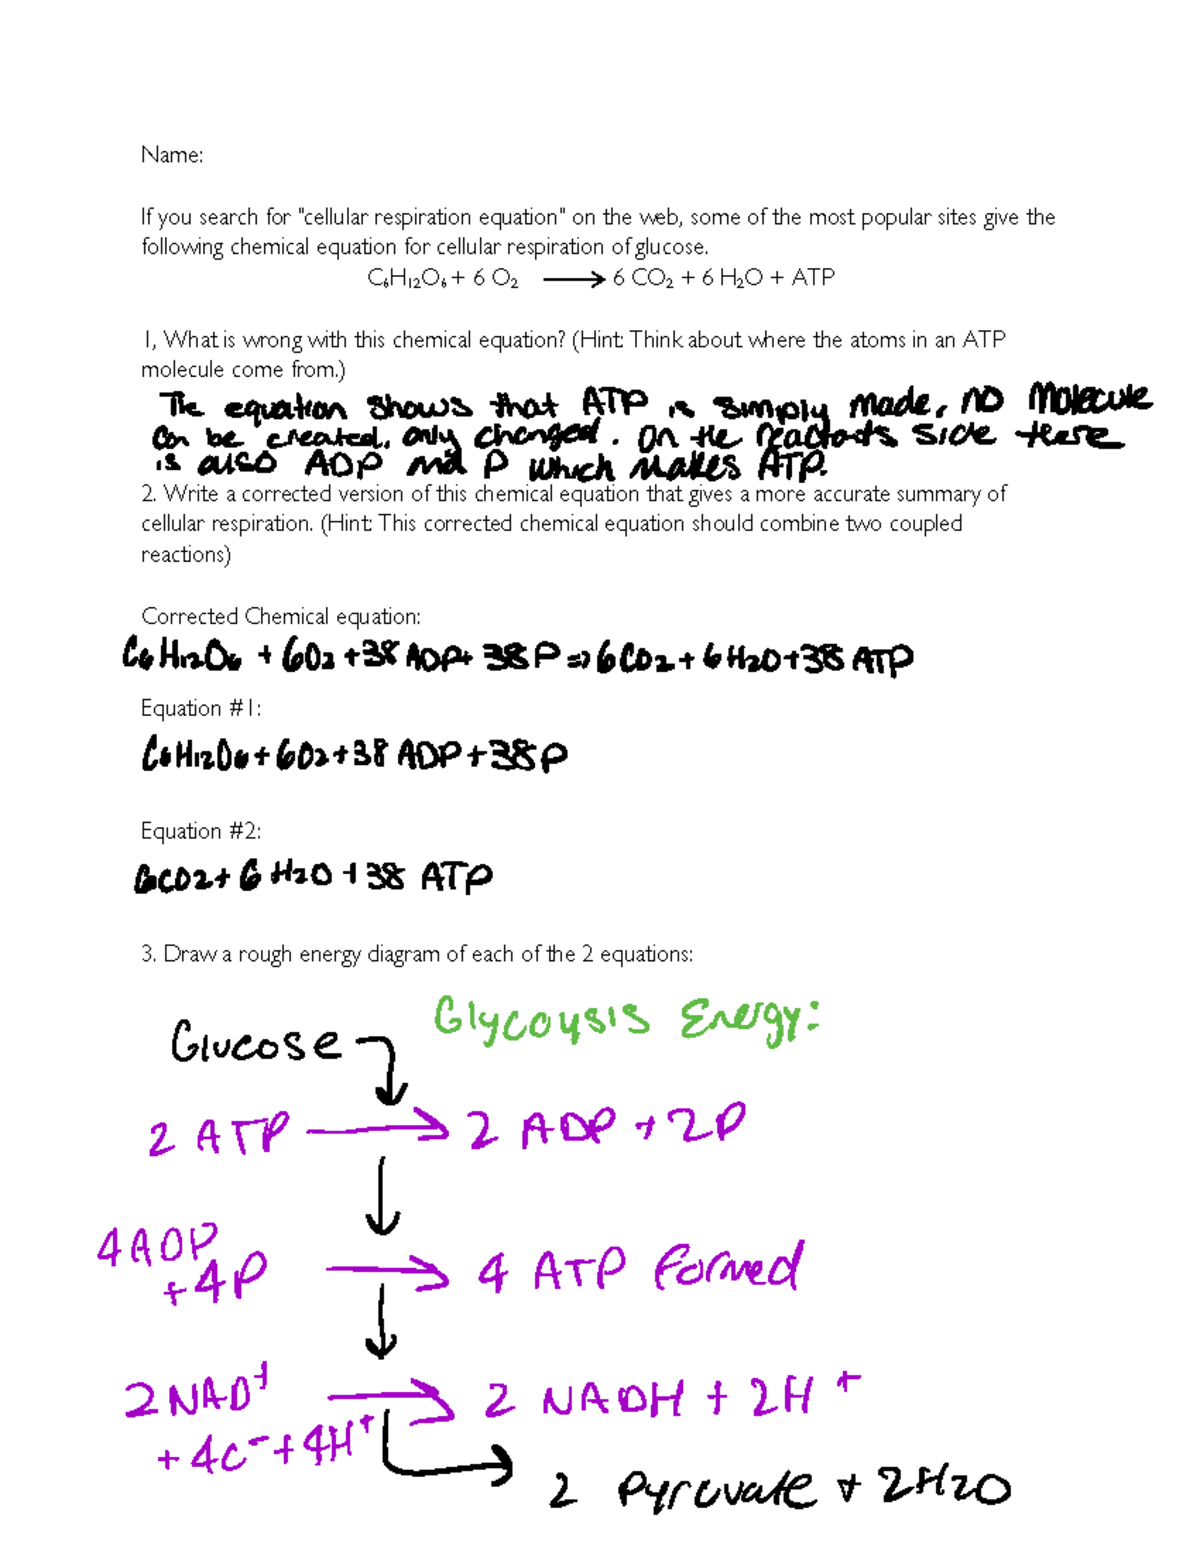 Name:
If you search for "cellular respiration equation" on the web, some of the most popular sites give the
following chemical equation for cellular respiration of glucose.
C₆H₁₂O₆ + 6 O₂ ⟶ 6 CO₂ + 6 H₂O + ATP
1, What is wrong with this chemical equation? (Hint: Think about where the atoms in an ATP
molecule come from.)
The equation shows that ATP is simply made, no molecule
can be created, only changed. On the reactants side there
is also ADP and P which makes ATP.
2. Write a corrected version of this chemical equation that gives a more accurate summary of
cellular respiration. (Hint: This corrected chemical equation should combine two coupled
reactions)
Corrected Chemical equation:
C6H12O6 + 6O2 + 38 ADP + 38 P => 6CO2 + 6H2O + 38 ATP
Equation #1:
C6H12O6 + 6O2 + 38 ADP + 38 P
Equation #2:
6CO2 + 6 H2O + 38 ATP
3. Draw a rough energy diagram of each of the 2 equations:
Glycoysis Energy:
Glucose
2 ATP → 2 ADP + 2P
4 ADP
+ 4P → 4 ATP formed
2 NAD+ → 2 NADH + 2H+
+ 4C⁻ + 4H+
2 Pyruvate + 2H2O